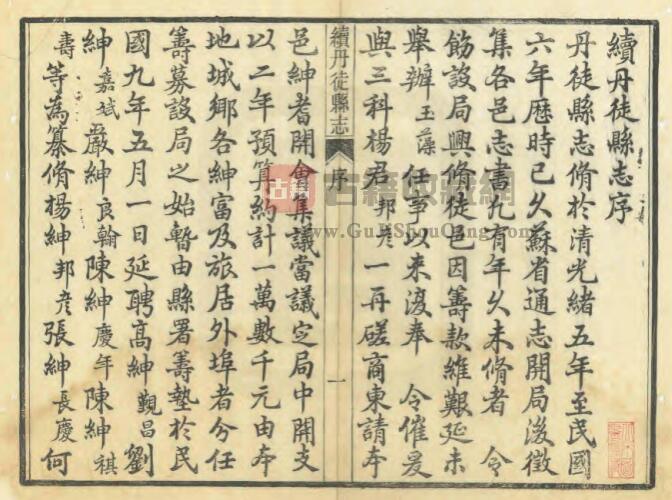 續丹徒縣志序
丹徒縣志脩於清光緒五年至民國
六年歷時已久蘇省通志開局後徵
集各邑志書凡有年久未脩者 令
飭設局興脩徒邑因籌款維艱延未
舉辦玉藻任事以來復奉 令催爰
與三科楊君邦彥一再磋商柬請本
續丹徒縣志 序 一
邑紳耆開會集議當議定局中開支
以二年預算約計一萬數千元由本
地城鄉各紳富及旅居外埠者分任
籌募設局之始暫由縣署籌墊於民
國九年五月一日延聘高紳覲昌劉
紳嘉斌嚴紳良翰陳紳慶年陳紳祺
壽等為纂脩楊紳邦彥張紳長慶何
古籍收藏網
www.GuJiShouCang.com